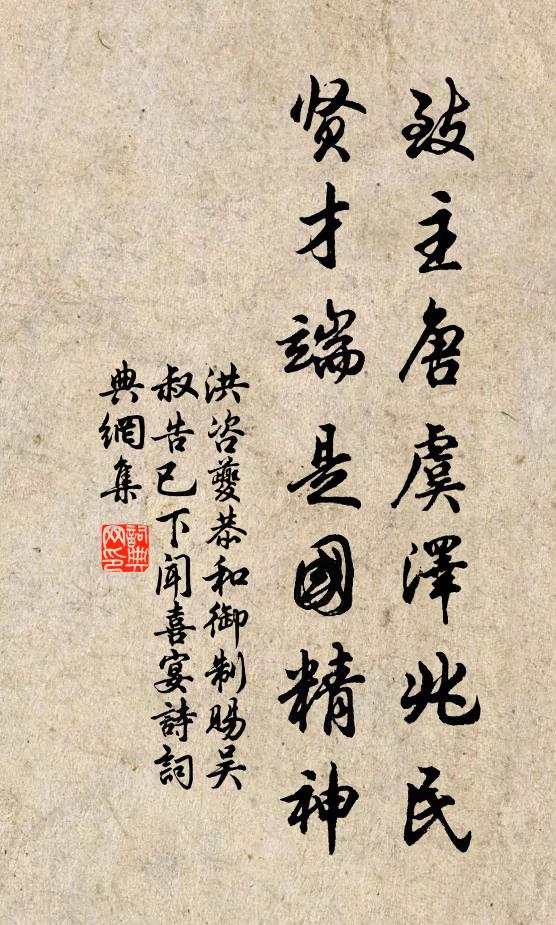 致主唐虞澤兆民
贤才端是國精神
洪咨夔恭和御制賜吴
叔告已下闻喜宴詩詞
典網集
詞典网印